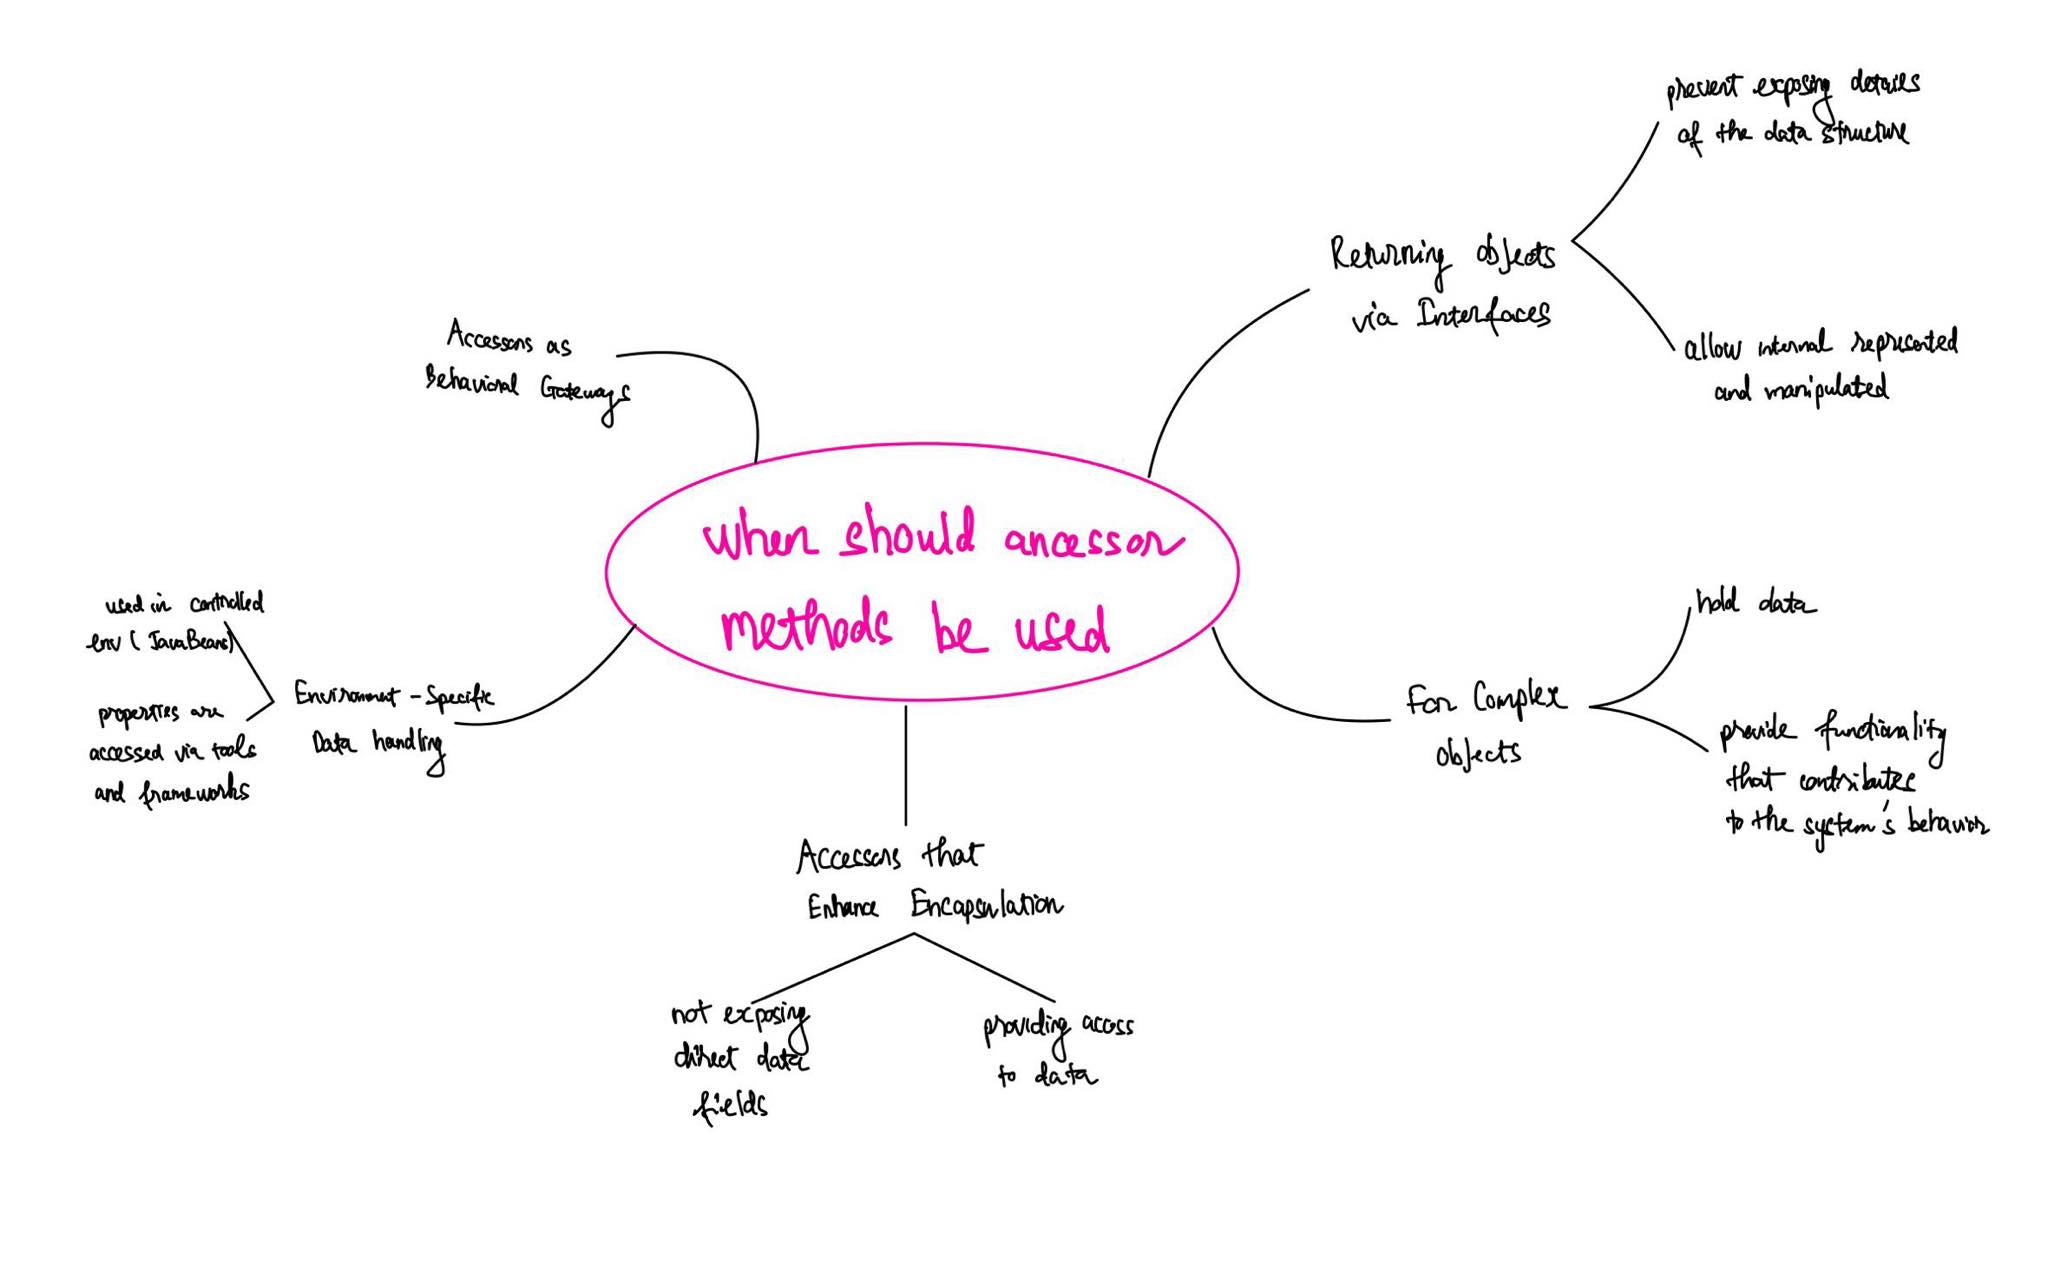 when should ancessor
methods be used
Returning objects
via Interfaces
prevent exposing details
of the data structure
allow internal represented
and manipulated
For Complex
objects
hold data
provide functionality
that contributes
to the system's behavior
Accessors that
Enhance Encapsulation
not exposing
direct data
fields
providing access
to data
Environment - Specific
Data handling
used in controlled
env ( JavaBeans)
properties are
accessed via tools
and frameworks
Accessors as
Behavioral Gateways